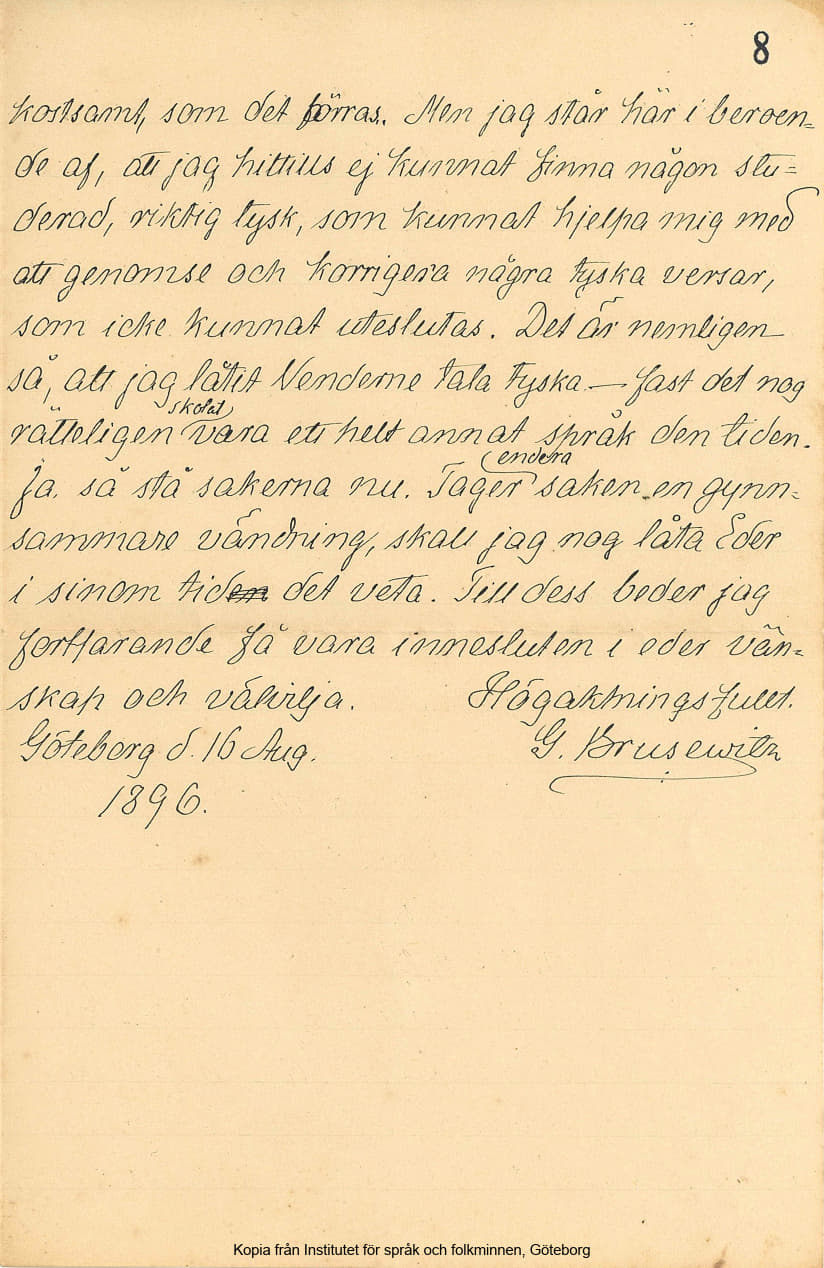 8
kostsamt, som det förras. Men jag står här i beroen=
de af, att jag hittills ej kunnat finna någon stu=
derad, riktig tysk, som kunnat hjelpa mig med
att genomse och korrigera några tyska versar,
som icke kunnat uteslutas. Det är nemligen
så, att jag låtit Venderne tala tyska — fast det nog
skolat
rätteligen vara ett helt annat språk den tiden.
Ja, så stå sakerna nu. Tager saken en gynn=
endera
sammare vändning, skall jag nog låta Eder
i sinom tiden det veta. Till dess beder jag
fortfarande få vara innesluten i eder vän=
skap och välvilja. Högaktningsfullt.
Göteborg d. 16 Aug. G. Brusewitz
1896.
Kopia från Institutet för språk och folkminnen, Göteborg